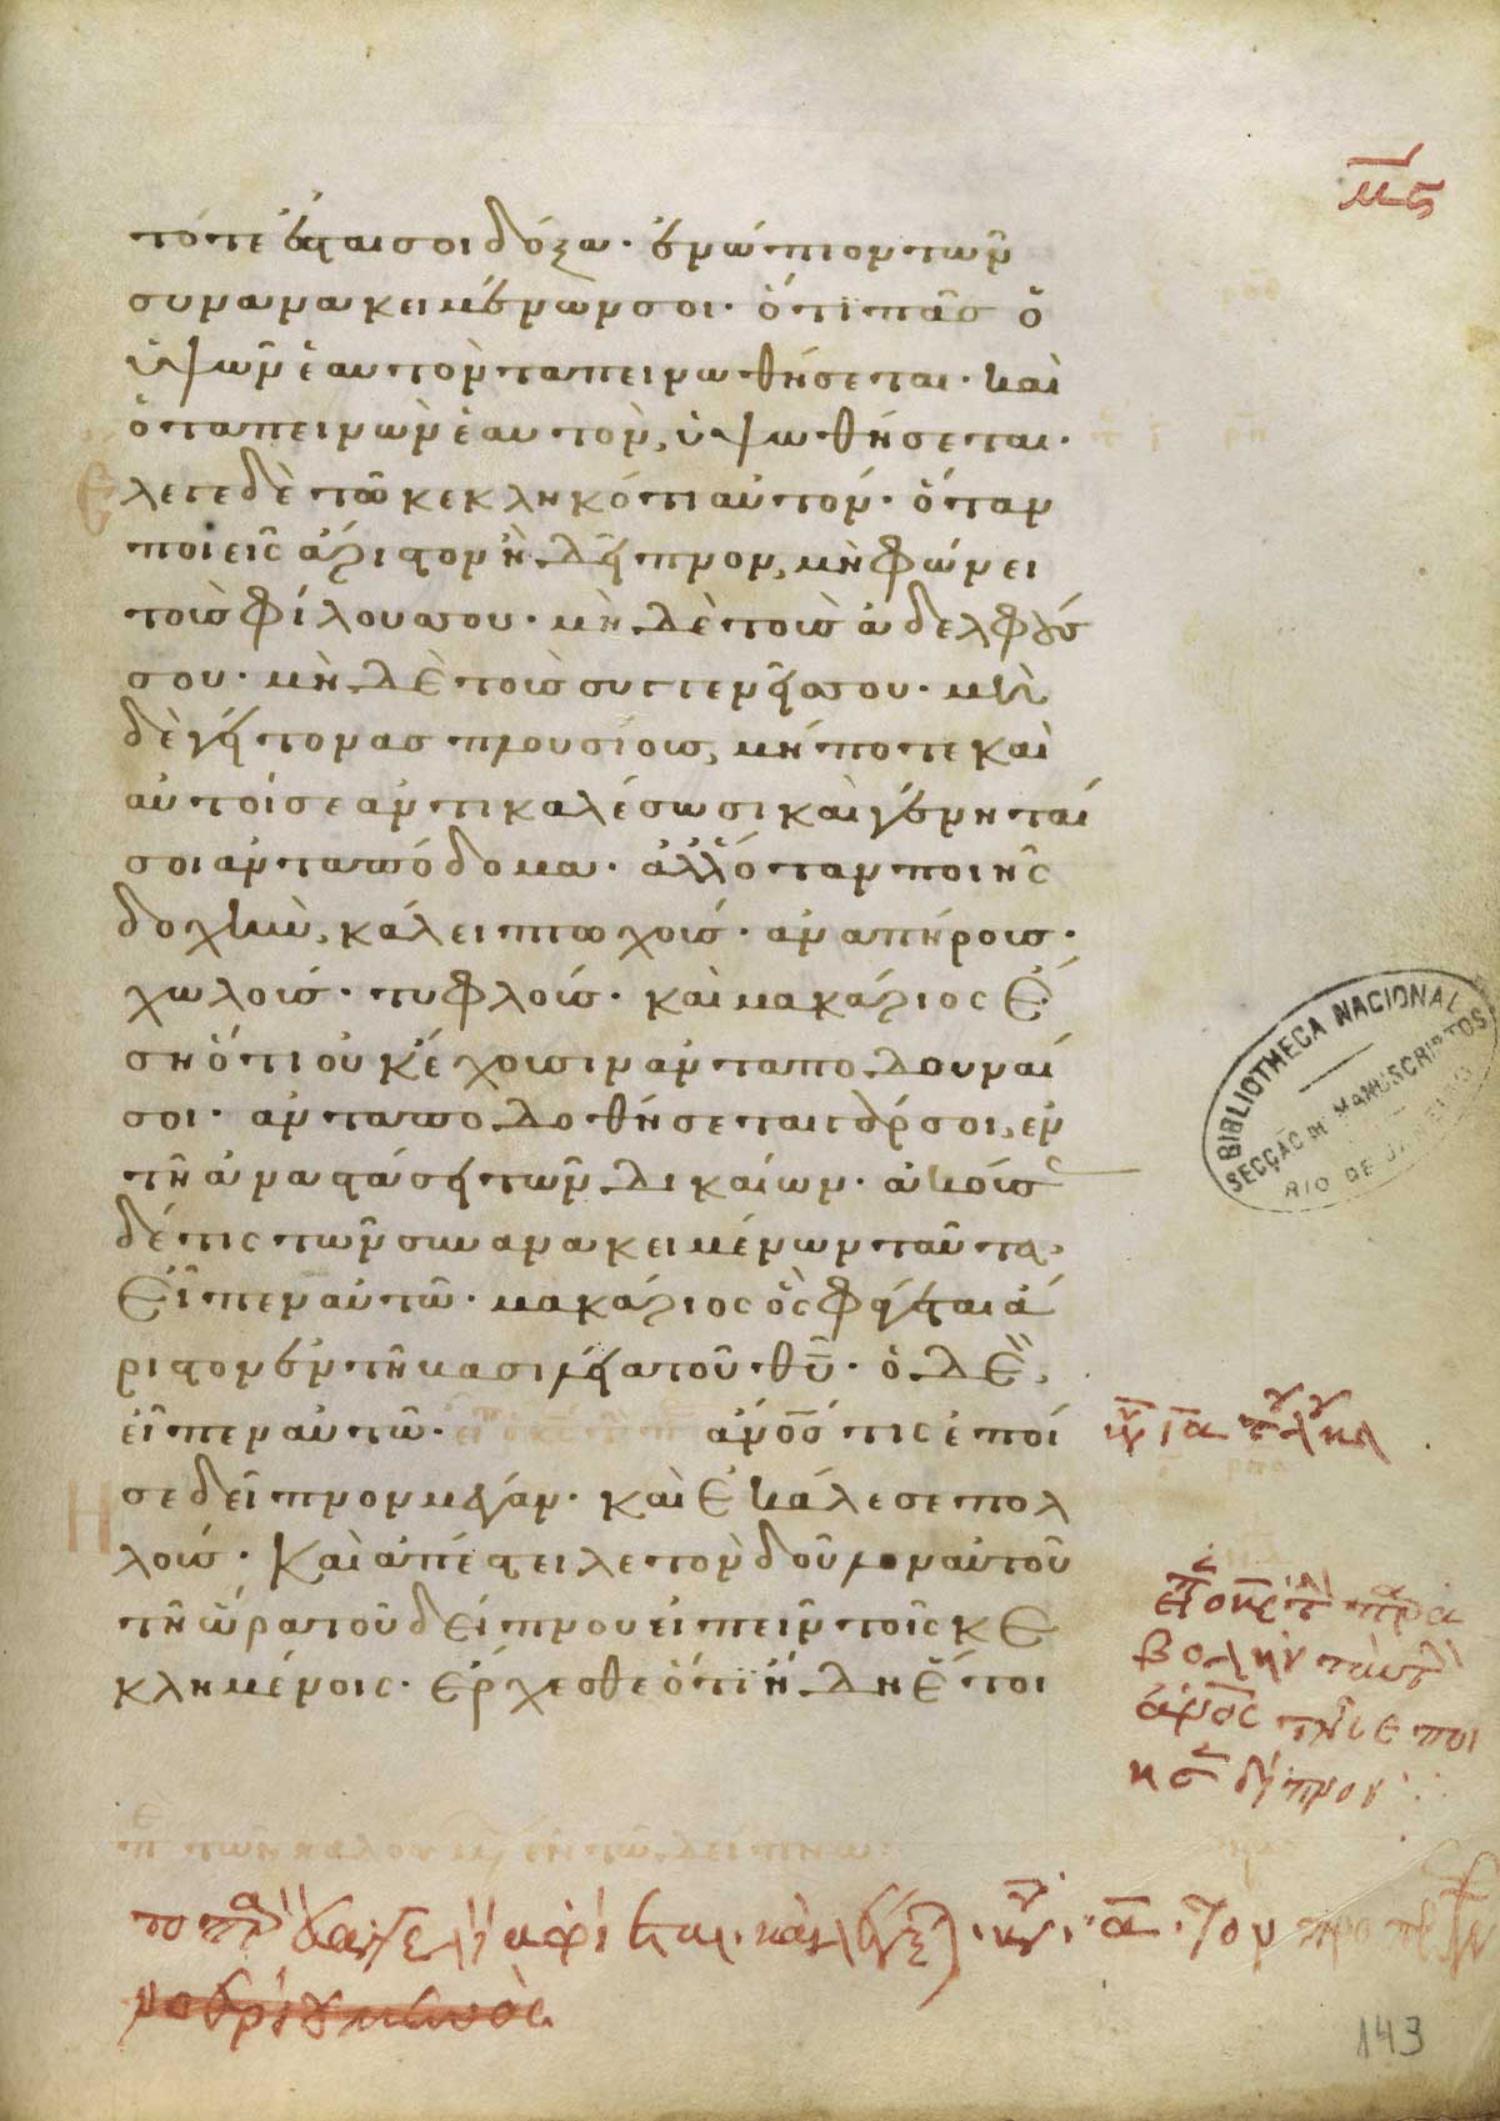 μς
τότε ἔσται σοι δόξα· ἐνώπιον τῶν
συνανακειμένων σοι· ὅτι πᾶσ ὁ
ὑψῶν ἑαυτὸν ταπεινωθήσεται· καὶ
ὁ ταπεινῶν ἑαυτὸν, ὑψωθήσεται·
Ἔλεγε δὲ τῶ κεκληκότι αὐτόν· ὅταν
ποιεῖς ἄριστον ἢ δεῖπνον, μὴ φώνει
τοὺσ φίλουσ σου· μὴ δὲ τοὺσ ἀδελφούσ
σου· μὴ δὲ τοὺσ συγγενεῖσ σου· μὴ
δὲ γείτονασ πλουσίουσ, μήποτε καὶ
αὐτοί σε ἀντικαλέσωσι καὶ γένηταί
σοι ἀνταπόδομα· ἀλλ' ὅταν ποιῆς
δοχὴν, κάλει πτωχούσ· ἀναπήρουσ·
χωλούσ· τυφλούσ· καὶ μακάριος ἔ
ση ὅτι οὐκ ἔχουσιν ἀνταποδοῦναί
σοι· ἀνταποδοθήσεται γάρ σοι, ἐν
τῆ ἀναστάσει τῶν δικαίων· ἀκούσ
δέ τις τῶν συνανακειμένων ταῦτα,
εἶπεν αὐτῶ· μακάριος ὃς φάγεται ἄ
ριστον ἐν τῆ βασιλεία τοῦ θῦ· ὁ δὲ,
εἶπεν αὐτῶ· ἄνοσ τις ἐποί
σε δεῖπνον μέγαν· καὶ ἐκάλεσε πολ
λούσ· Καὶ ἀπέστειλε τὸν δοῦλον αὐτοῦ
τῆ ὥρα τοῦ δείπνου εἰπεῖν τοῖς κε
κλημένοις· ἔρχεσθε ὅτι ἤδη ἕτοι
βολὴν
143
BIBLIOTHECA NACIONAL
SECÇÃO DE MANUSCRIPTOS
RIO DE JANEIRO